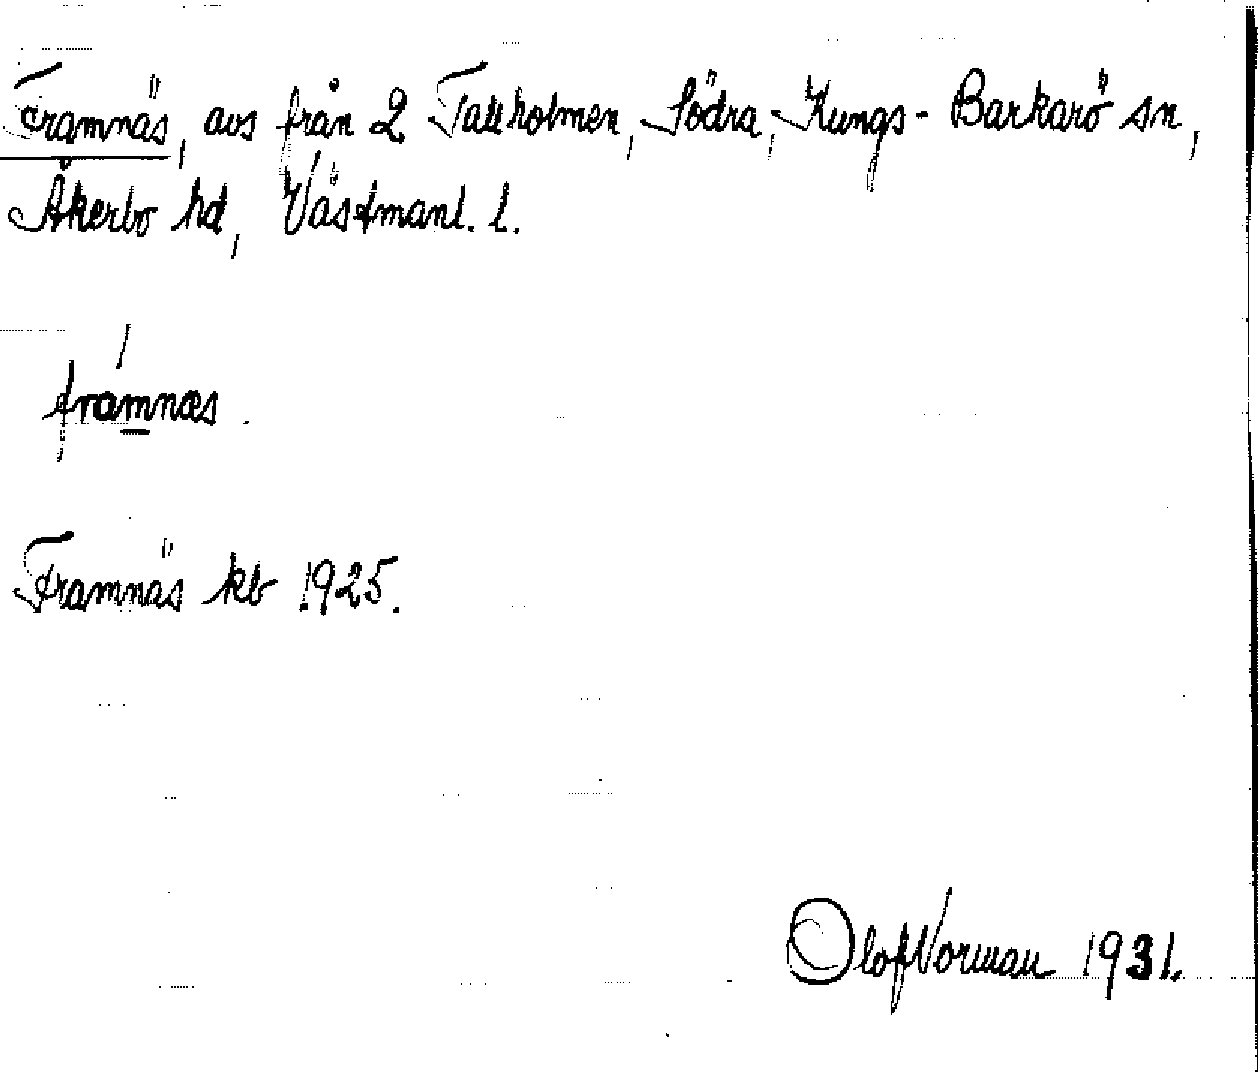 Framnäs, avs från 2 Tallholmen, Södra, Kungs-Barkarö sn,
Åkerbo hd, Västmanl. l.
framnæs.
Framnäs kb 1925.
Olof Norman 1931.